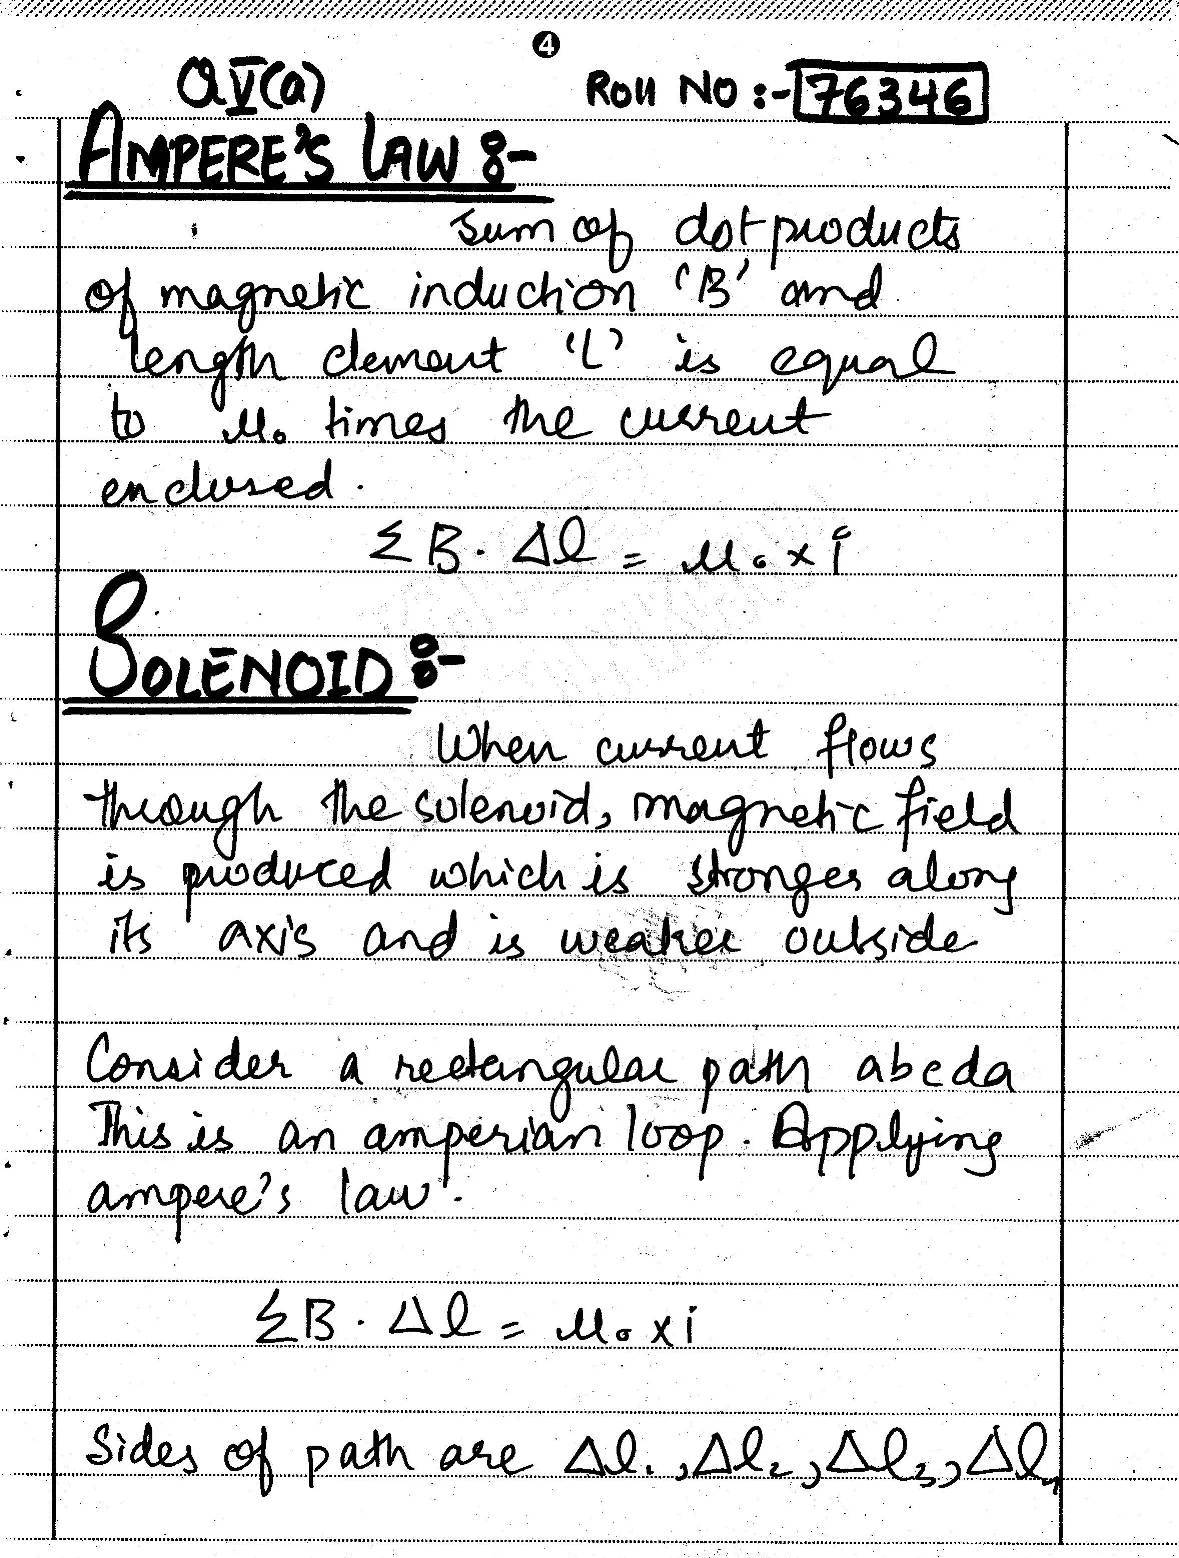 4
Q V(a) Roll No :- 76346
AMPERE'S LAW :-
Sum of dot products
of magnetic induction 'B' and
length element 'L' is equal
to μ₀ times the current
enclosed.
ΣB. Δl = μ₀ x i
SOLENOID :-
When current flows
through the solenoid, magnetic field
is produced which is stronger along
its axis and is weaker outside
Consider a rectangular path abcda
This is an amperian loop. Applying
ampere's law.
ΣB. Δl = μ₀ x i
Sides of path are Δl₁, Δl₂, Δl₃, Δl₄